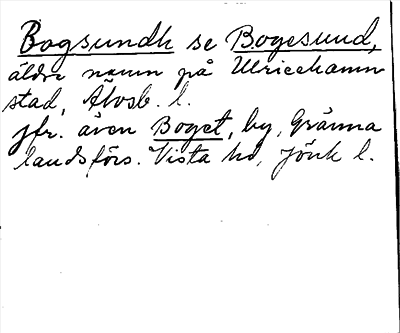 Bogsundh se Bogesund,
äldre namn på Ulricehamn
stad, Älvsb. l.
jfr. även Boget, by, Gränna
landsförs. Vista hd, Jönk l.